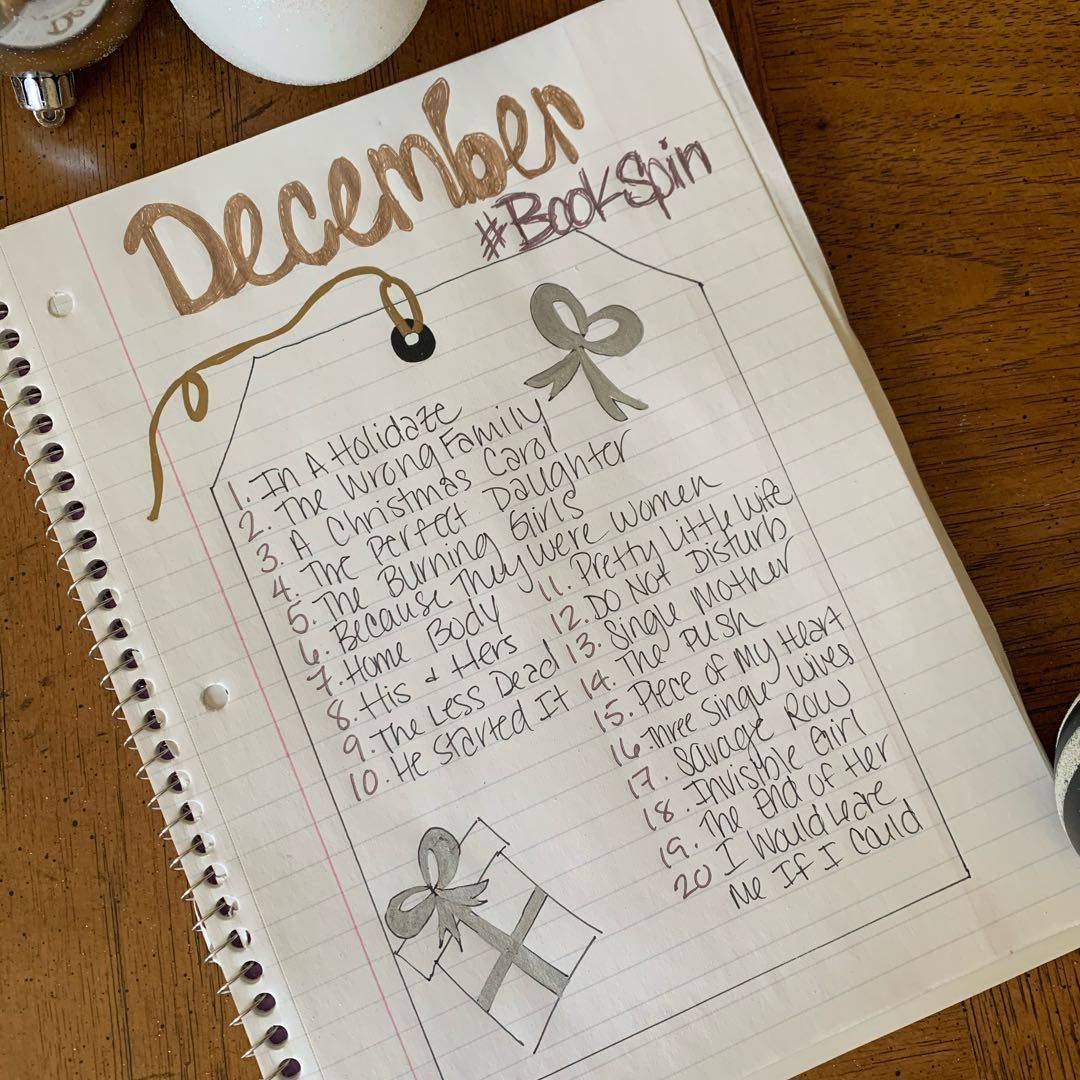 December
#BookSpin
1. In A Holidaze
2. The Wrong Family
3. A Christmas Carol
4. The Perfect Daughter
5. The Burning Girls
6. Because They Were Women
7. Home Body
8. His & Hers
9. The Less Dead
10. He Started It
11. Pretty Little Wife
12. Do Not Disturb
13. Single Mother
14. The Push
15. Piece of My Heart
16. Three Single Wives
17. Savage Row
18. Invisible Girl
19. The End of Her
20 I Would Leave
Me If I Could